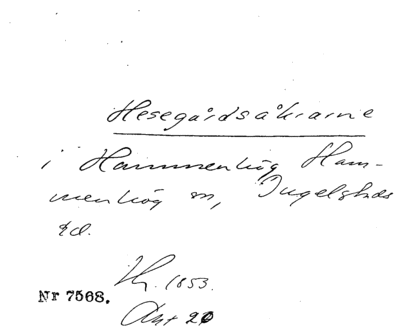 Hesegårdsåkrarne
i Hammenhög Ham-
menhög sn, Ingelstads
hd.
1853.
Nr 7568.
Akt 20